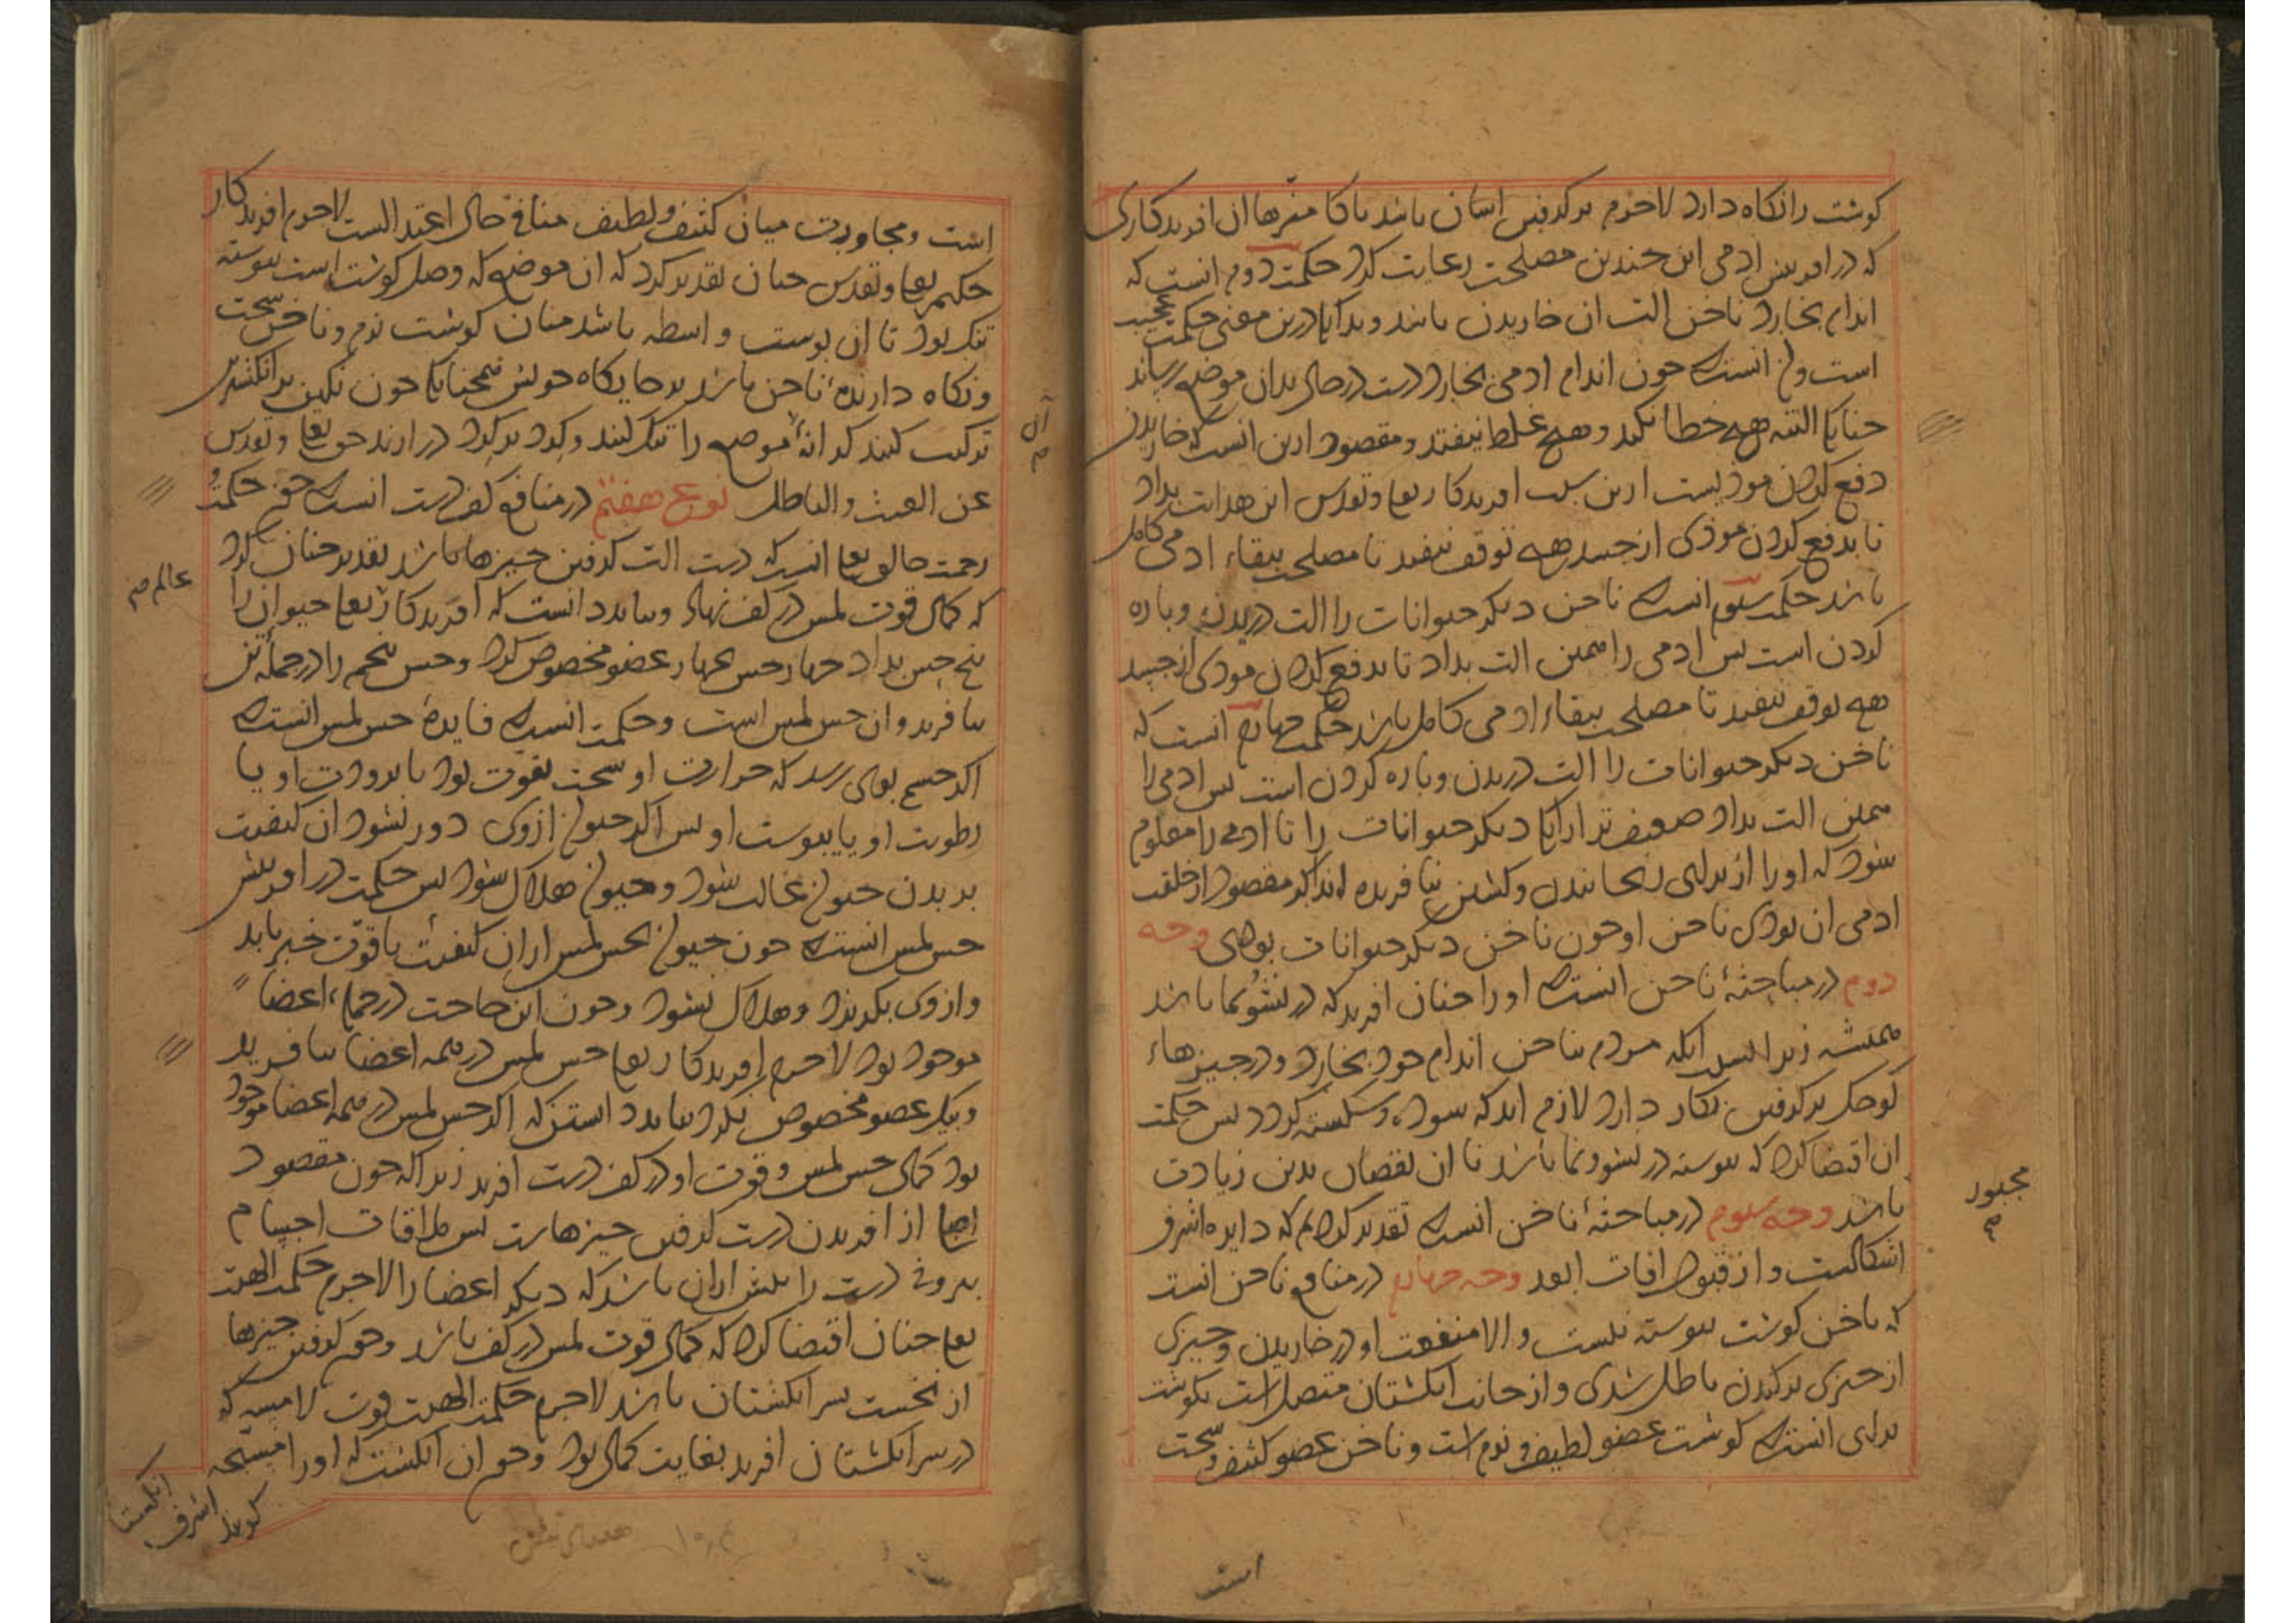 گوشت را نکاه دارد لاجرم بر کرفتن اسان باشد باکا منزها ان افریدکاری
که در افرینش ادمی این چندین مصلحت رعایت کرد حکمت دوم انست که
اندام بخارد ناخن الت ان خاریدن باشد و بدانک درین معنی حکمت عجیب
است و ان انست که چون اندام ادمی بخارد دست در حال بدان موضع رساند
چنانک البته هیچ خطا نکند و هیچ غلط نیفتد و مقصود ازین انست که خاریدن
دفع کردن موذیست ازین سبب افریدکار تعا و تقدس این هدایت بداد
تا بدفع کردن موذی از جسد هیچ توقف نیفتد تا مصلحت ببقاء ادمی کامل
باشد حکمت سیوم انست که ناخن دیکر حیوانات را الت دریدن و باره
کردن است بس ادمی را همین الت بداد تا بدفع کردن موذی از جسد
هیچ توقف نیفتد تا مصلحت ببقاء ادمی کامل باشد حکمت چهارم انست که
ناخن دیکر حیوانات را الت دریدن و باره کردن است بس ادمی را
همین الت بداد ضعیف تر از انک دیکر حیوانات را تا ادمی را معلوم
شود که او را از برای رنجانیدن و کشتن نیافریده اند اکر مقصود از خلقت
ادمی ان بودی ناخن او چون ناخن دیکر حیوانات بودی وجه
دوم در مباحثهٔ ناخن انست که او را چنان افرید که در نشو نما باشد
همیشه زیرا بسبب انکه مردم بناخن اندام خود بخارد و در چیزهاء
کوچک بر کرفتن بکار دارد لازم اید که سوده و شکسته کردد بس حکمت
ان اقتضا کرد که بیوسته در نشو و نما باشد تا ان نقصان بدین زیادت
باشد وجه سیوم در مباحثهٔ ناخن انست که تقدیر کردیم که دایره اشرف
اشکالست و از قبول افات ابعد وجه چهارم در منافع ناخن انست
که ناخن کوشت بیوسته نیست و الا منفعت او در خاریدن و چیزی
از چیزی بر کندن باطل شدی و از جانب انکشتان متصل است بکوشت
برای انست که کوشت عضو لطیف و نرم است و ناخن عضو کثیف و سخت
مجبور
م
است
است و مجاورت میان کثیف و لطیف منافی حال اعتدالست لاجرم افریدکار
حکیم تعا و تقدس چنان تقدیر کرد که ان موضع که وصل کوشت است بیوسته
تنک بود تا ان بوست واسطه باشد میان کوشت نرم و ناخن سخت
و نکاه دارندهٔ ناخن باشد بر جایکاه خویش همچنانک چون نکین بر انکشتری
ترکیب کنند کرانهٔ موضع را تنک کنند و کرد بر کرد در ارند حق تعا و تقدس
عن العبث و الباطل نوع هفتم در منافع کف دست انست که چون حکمت
رحمت خالق تعا انست که دست الت کرفتن چیزها باشد تقدیر چنان کرد
که کمال قوت لمس در کف نهاد و بباید دانست که افریدکار تعا حیوان را
بنج حس بداد چهار حس بچهار عضو مخصوص کرد و حس بنجم را در جملهٔ تن
بیافرید و ان حس لمس است و حکمت انست که فایدهٔ حس لمس انست که
اکر جسم بوی رسد که حرارت او سخت بقوت بود یا برودت او یا
رطوبت او یا یبوست او بس اکر حیوان از وی دور نشود ان کیفیت
بر بدن حیوان غالب شود و حیوان هلاک شود بس حکمت در افرینش
حس لمس انست که چون حیوان بحس لمس از ان کیفیت باقوت خبر یابد
و از وی بکریزد و هلاک نشود و چون این حاجت در جملهٔ اعضا
موجود بود لاجرم افریدکار تعا حس لمس در همه اعضا بیافرید
و بیک عضو مخصوص نکرد بباید دانستن که اکر حس لمس در همه اعضا موجود
بود کمال حس لمس و قوت او در کف دست افرید زیرا که چون مقصود
از افریدن دست کرفتن چیزهاست بس ملاقات اجسام
بیرونی دست را بیش از ان باشد که دیکر اعضا را لاجرم حکمت الهیت
تعا چنان اقتضا کرد که کمال قوت لمس در کف باشد و چون کرفتن چیزها
از نخست بسر انکشتان باشد لاجرم حکمت الهیت قوت لامسه که
در سر انکشتان افرید بغایت کمال بود و چون ان انکشت که او را مسبحه
کویند اشرف انکشتا
آن
م
عالم م